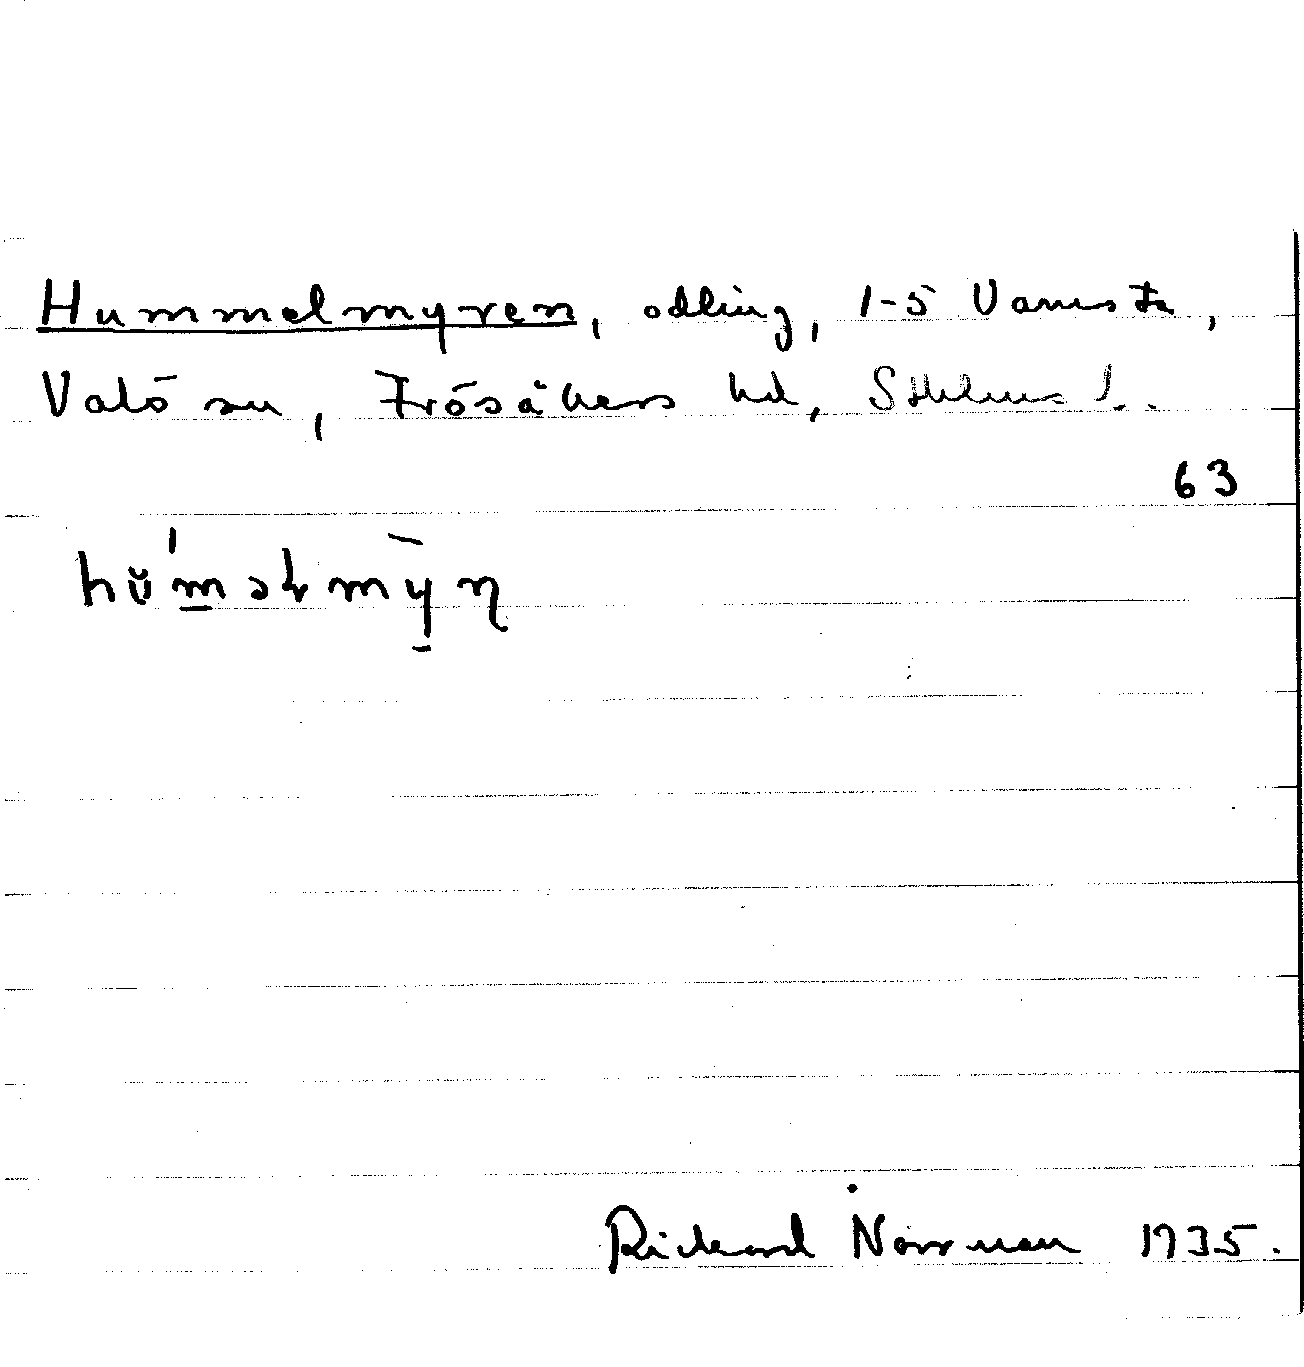 Hummelmyren, odling, 1-5 Vamsta,
Valö sn, Frösåkers hd, Sthlms l.
63
hŭ'məɫmȳn
Rickard Norrman 1935.